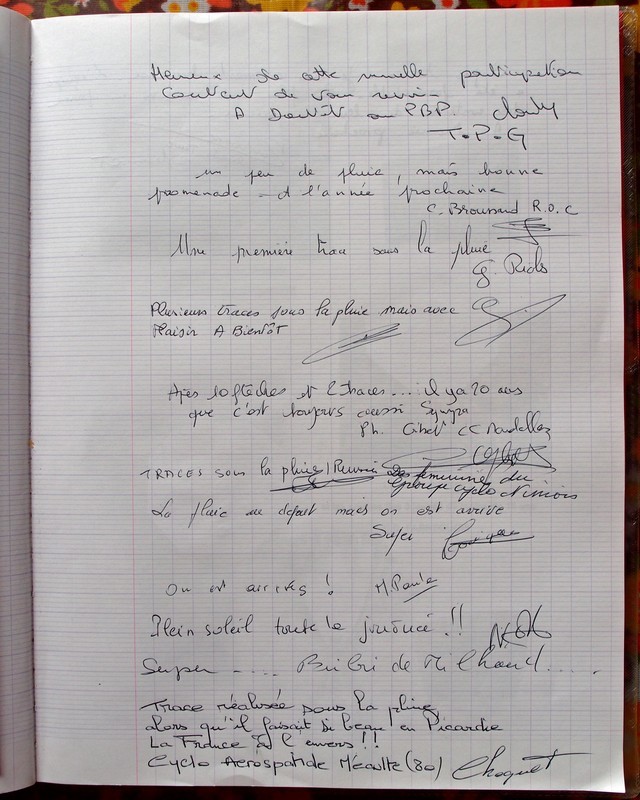 Heureux de cette nouvelle participation
Content de vous revoir
A Bientôt au PBP. 
T.P.G
un peu de pluie, mais bonne
promenade - et l'année prochaine
C. Broussard R.O.C
Une première trace sous la pluie
G.
Plusieurs traces sous la pluie mais avec
Plaisir A Bientôt
Après 10 flèches et 2 traces... il y a 20 ans
que c'est toujours aussi Sympa
Ph. CC
TRACES sous la pluie, Réunion des féminines du
Groupe cyclo Nimois
La pluie au départ mais on est arrivé
Super
On est arrivés ! M. Paule
Plein soleil toute la journée !!
Super ..... Bribri de Milhaud .....
Trace réalisée sous la pluie,
alors qu'il faisait si beau en Picardie
La France à l'envers !!
Cyclo Aérospatiale Méaulte (80) Choquet